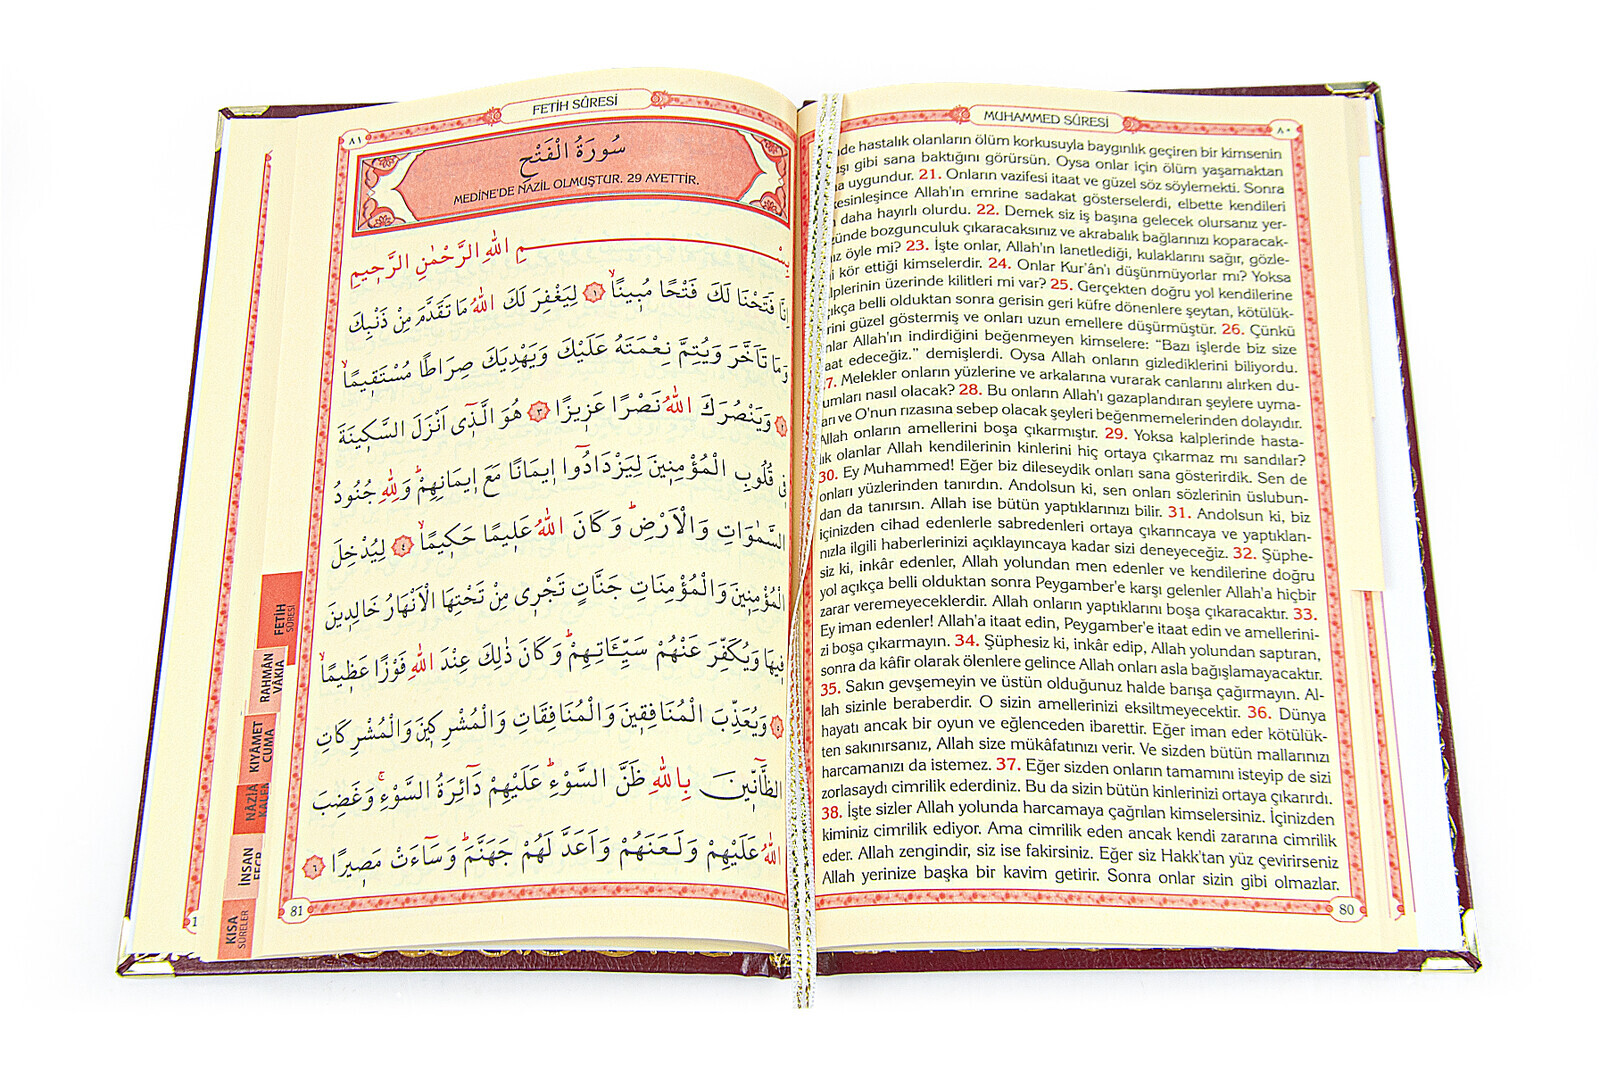 FETİH SÛRESİ
٨١
سُورَةُ الْفَتْحِ
MEDİNE'DE NAZİL OLMUŞTUR. 29 AYETTİR.
بِسْمِ اللّٰهِ الرَّحْمٰنِ الرَّحِيمِ
اِنَّا فَتَحْنَا لَكَ فَتْحًا مُبِينًاۙ ١ لِيَغْفِرَ لَكَ اللّٰهُ مَا تَقَدَّمَ مِنْ ذَنْبِكَ
وَمَا تَاَخَّرَ وَيُتِمَّ نِعْمَتَهُ عَلَيْكَ وَيَهْدِيَكَ صِرَاطًا مُسْتَقِيمًاۙ
٢ وَيَنْصُرَكَ اللّٰهُ نَصْرًا عَزِيزًا ٣ هُوَ الَّذِٓى اَنْزَلَ السَّكِينَةَ
فِى قُلُوبِ الْمُؤْمِنِينَ لِيَزْدَادُٓوا اِيمَانًا مَعَ اِيمَانِهِمْۜ وَلِلّٰهِ جُنُودُ
السَّمٰوَاتِ وَالْاَرْضِۜ وَكَانَ اللّٰهُ عَلِيمًا حَكِيمًاۙ ٤ لِيُدْخِلَ
الْمُؤْمِنِينَ وَالْمُؤْمِنَاتِ جَنَّاتٍ تَجْرِى مِنْ تَحْتِهَا الْاَنْهَارُ خَالِدِينَ
فِيهَا وَيُكَفِّرَ عَنْهُمْ سَيِّـَٔاتِهِمْۜ وَكَانَ ذٰلِكَ عِنْدَ اللّٰهِ فَوْزًا عَظِيمًاۙ
٥ وَيُعَذِّبَ الْمُنَافِقِينَ وَالْمُنَافِقَاتِ وَالْمُشْرِكِينَ وَالْمُشْرِكَاتِ
الظَّٓانِّينَ بِاللّٰهِ ظَنَّ السَّوْءِۜ عَلَيْهِمْ دَٓائِرَةُ السَّوْءِۚ وَغَضِبَ
اللّٰهُ عَلَيْهِمْ وَلَعَنَهُمْ وَاَعَدَّ لَهُمْ جَهَنَّمَۜ وَسَٓاءَتْ مَصِيرًا ٦
81
FETİH
SÛRESİ
RAHMAN
VÂKIA
KIYÂMET
CUMA
İNSAN
KISA
SÛRELER
MUHAMMED SÛRESİ
٨٠
hastalık olanların ölüm korkusuyla baygınlık geçiren bir kimsenin
gibi sana baktığını görürsün. Oysa onlar için ölüm yaşamaktan
uygundur. 21. Onların vazifesi itaat ve güzel söz söylemekti. Sonra
kesinleşince Allah'ın emrine sadakat gösterselerdi, elbette kendileri
daha hayırlı olurdu. 22. Demek siz iş başına gelecek olursanız yer-
bozgunculuk çıkaracaksınız ve akrabalık bağlarınızı koparacak-
öyle mi? 23. İşte onlar, Allah'ın lanetlediği, kulaklarını sağır, gözle-
kör ettiği kimselerdir. 24. Onlar Kur'ân'ı düşünmüyorlar mı? Yoksa
üzerinde kilitleri mi var? 25. Gerçekten doğru yol kendilerine
belli olduktan sonra gerisin geri küfre dönenlere şeytan, kötülük-
güzel göstermiş ve onları uzun emellere düşürmüştür. 26. Çünkü
Allah'ın indirdiğini beğenmeyen kimselere: "Bazı işlerde biz size
edeceğiz." demişlerdi. Oysa Allah onların gizlediklerini biliyordu.
Melekler onların yüzlerine ve arkalarına vurarak canlarını alırken du-
rumları nasıl olacak? 28. Bu onların Allah'ı gazaplandıran şeylere uyma-
ları ve O'nun rızasına sebep olacak şeyleri beğenmemelerinden dolayıdır.
Allah onların amellerini boşa çıkarmıştır. 29. Yoksa kalplerinde hasta-
lık olanlar Allah kendilerinin kinlerini hiç ortaya çıkarmaz mı sandılar?
30. Ey Muhammed! Eğer biz dileseydik onları sana gösterirdik. Sen de
onları yüzlerinden tanırdın. Andolsun ki, sen onları sözlerinin üslubun-
dan da tanırsın. Allah ise bütün yaptıklarınızı bilir. 31. Andolsun ki, biz
içinizden cihad edenlerle sabredenleri ortaya çıkarıncaya ve yaptıkları-
nızla ilgili haberlerinizi açıklayıncaya kadar sizi deneyeceğiz. 32. Şüphe-
siz ki, inkâr edenler, Allah yolundan men edenler ve kendilerine doğru
yol açıkça belli olduktan sonra Peygamber'e karşı gelenler Allah'a hiçbir
zarar veremeyeceklerdir. Allah onların yaptıklarını boşa çıkaracaktır. 33.
Ey iman edenler! Allah'a itaat edin, Peygamber'e itaat edin ve amellerini-
zi boşa çıkarmayın. 34. Şüphesiz ki, inkâr edip, Allah yolundan saptıran,
sonra da kâfir olarak ölenlere gelince Allah onları asla bağışlamayacaktır.
35. Sakın gevşemeyin ve üstün olduğunuz halde barışa çağırmayın. Al-
lah sizinle beraberdir. O sizin amellerinizi eksiltmeyecektir. 36. Dünya
hayatı ancak bir oyun ve eğlenceden ibarettir. Eğer iman eder kötülük-
ten sakınırsanız, Allah size mükâfatınızı verir. Ve sizden bütün mallarınızı
harcamanızı da istemez. 37. Eğer sizden onların tamamını isteyip de sizi
zorlasaydı cimrilik ederdiniz. Bu da sizin bütün kinlerinizi ortaya çıkarırdı.
38. İşte sizler Allah yolunda harcamaya çağrılan kimselersiniz. İçinizden
kiminiz cimrilik ediyor. Ama cimrilik eden ancak kendi zararına cimrilik
eder. Allah zengindir, siz ise fakirsiniz. Eğer siz Hakk'tan yüz çevirirseniz
Allah yerinize başka bir kavim getirir. Sonra onlar sizin gibi olmazlar.
80